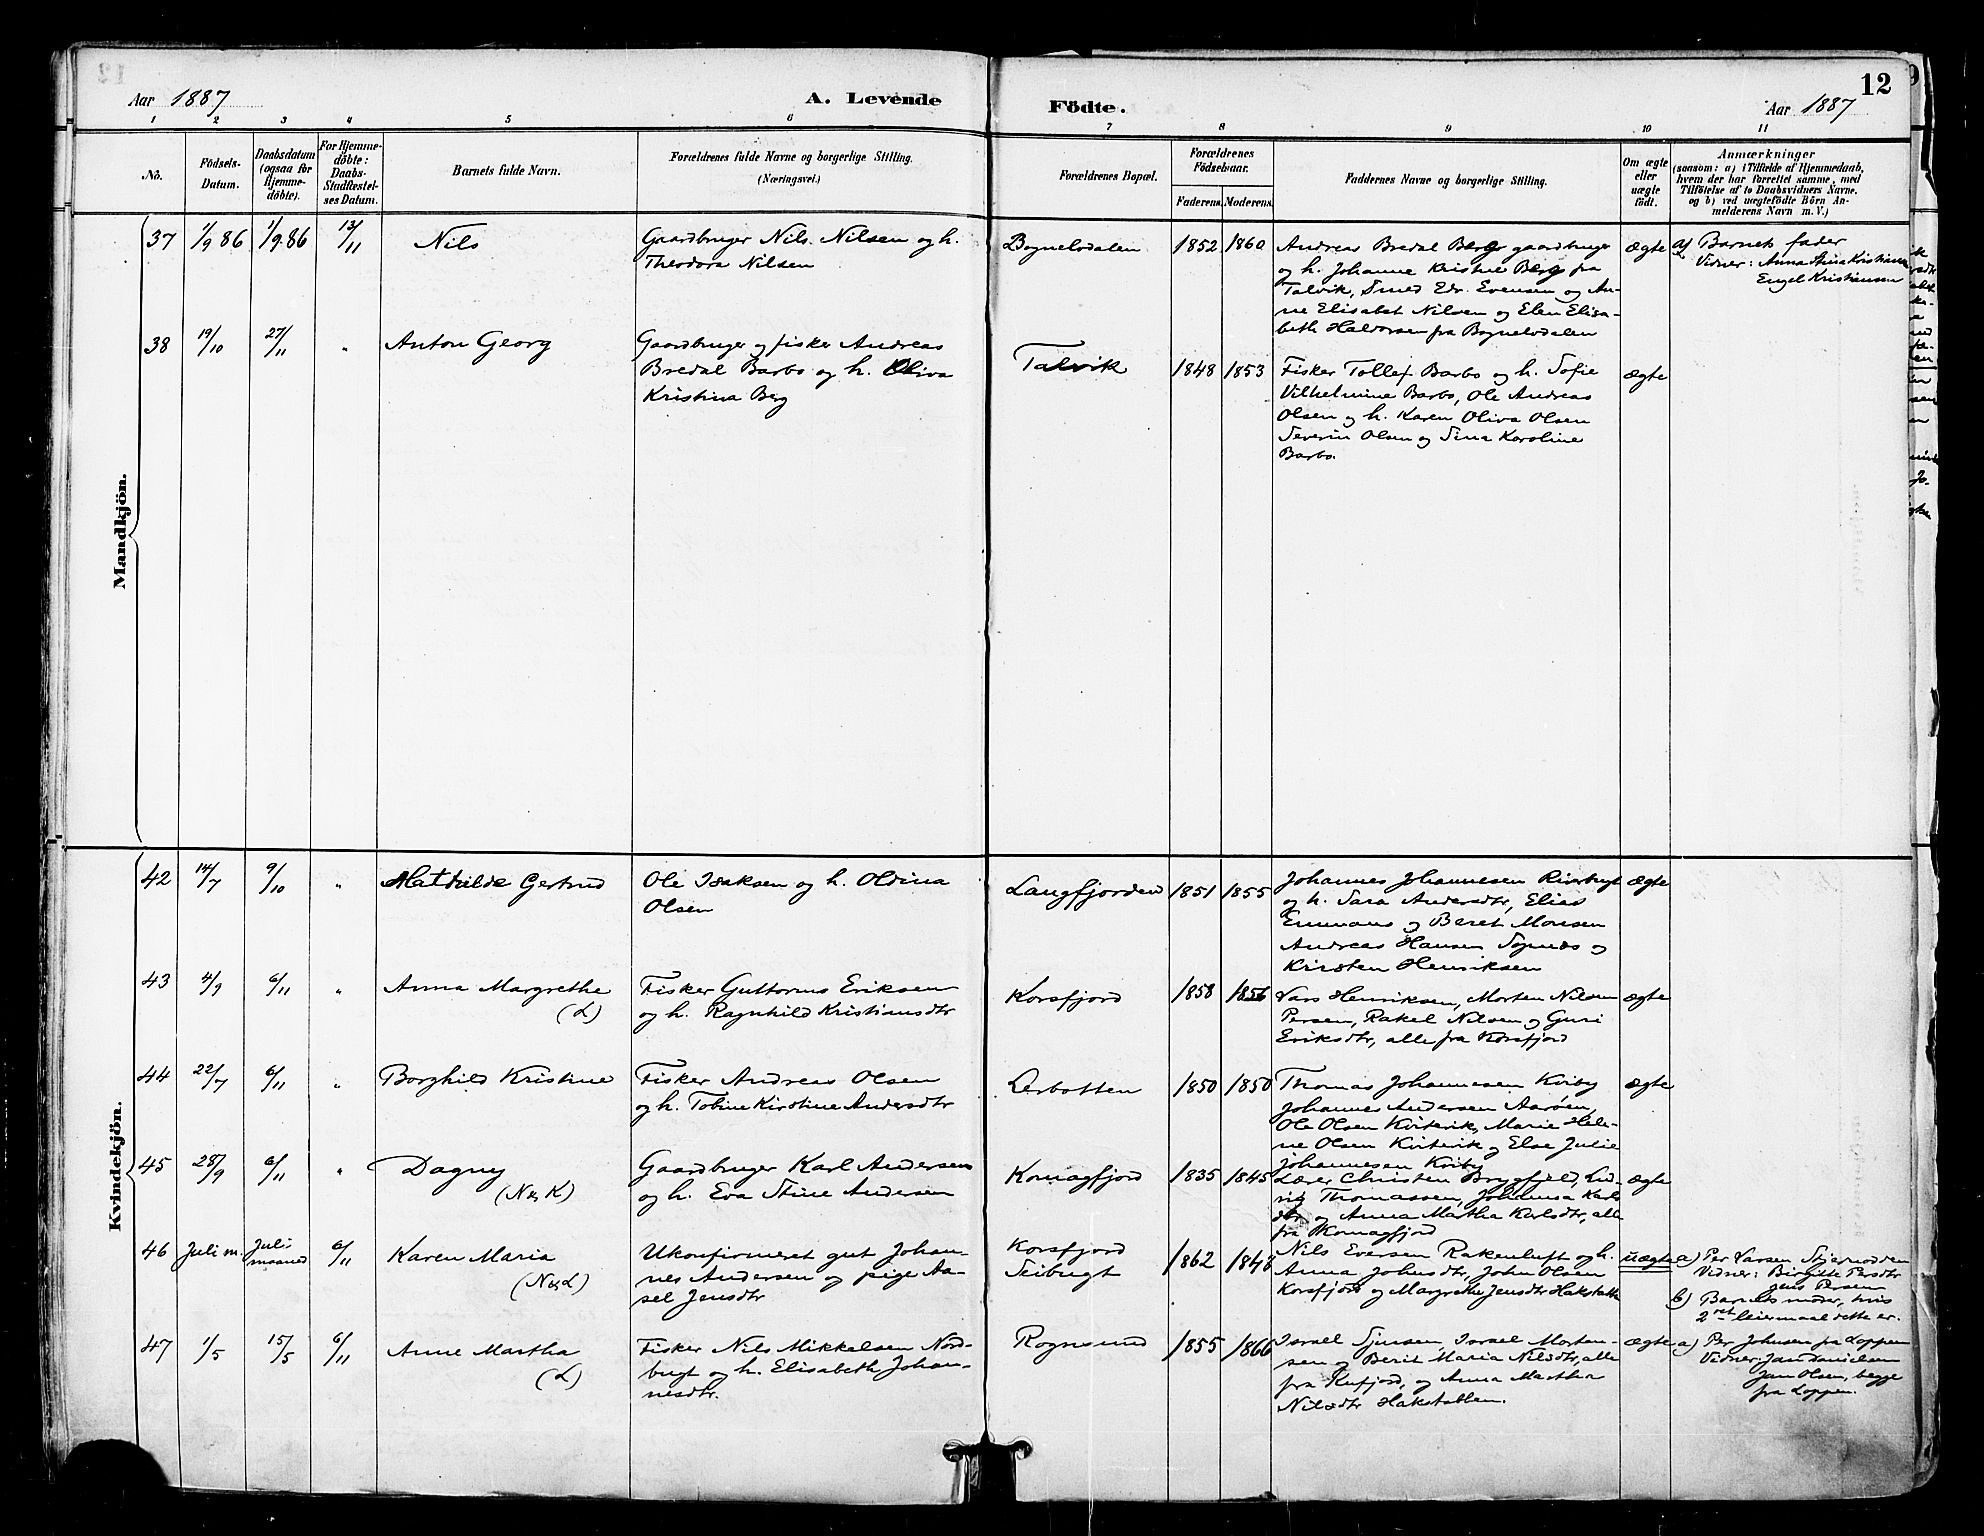 12
Aar 1887
A. Levende
Födte.
Aar 1887
1 2 3 4 5 6 7 8 9 10 11
No.
Födsels-
Datum.
Daabsdatum
(ogsaa for
Hjemme-
döbte).
For Hjemme-
döbte:
Daabs-
Stadfæstel-
ses Datum.
Barnets fulde Navn.
Forældrenes fulde Navne og borgerlige Stilling.
(Næringsvei.)
Forældrenes Bopæl.
Forældrenes
Födselsaar.
Faderens. Moderens.
Faddernes Navne og borgerlige Stilling.
Om ægte
eller
uægte
födt.
Anmærkninger
(saasom: a) i Tilfælde af Hjemmedaab,
hvem der har forrettet samme, med
Tilföielse af to Daabsvidners Navne,
og b) ved uægtefödte Börn An-
melderens Navn m. V.)
Mandkjön.
37 1/9 86 1/9.86 13/11
Nils
Gaardbruger Nils. Nilsen og h.
Theodora Nilsen
Bognelvdalen
1852 1860
Andreas Bredal Berg gaardbruger
og h. Johanne Kristine Berg fra
Talvik, Smed Edv. Evensen og An-
ne Elisabet Nilsen og Elen Elisa-
beth Halvorsen fra Bognelvdalen
ægte
a) Barnets fader
Vidner: Anna Stina Kristiansen
Engel Kristiansen
38 19/10 27/11 "
Anton Georg
Gaardbruger og fisker Andreas
Bredal Barbo og h. Oliva
Kristina Berg
Talvik
1848 1853
Fisker Tollef Barbo og h. Sofie
Vilhelmine Barbo, Ole Andreas
Olsen og h. Karen Oliva Olsen
Severin Olsen og Sina Karoline
Barbo.
ægte
Kvindekjön.
42 14/7 9/10 "
Mathilde Gertrud
Ole Isaksen og h. Oldina
Olsen
Langfjorden
1851 1855
Johannes Johannesen Riverbugt
og h. Sara Andersdtr, Elias
Emmaus og Beret Monsen
Andreas Hansen Sopnæs og
Kirsten Henriksen
ægte
43 4/9 6/11 "
Anna Margrethe
(L)
Fisker Guttorms Eriksen
og h. Ragnhild Kristiansdtr
Korsfjord
1858 1856
Lars Henriksen, Morten Nilsen
Persen, Rakel Nilsen og Guri
Eriksdtr, alle fra Korsfjord
ægte
44 22/7 6/11 "
Borghild Kristine
Fisker Andreas Olsen
og h. Tobine Kirstine Andersdtr
Lerbotten
1850 1850
Thomas Johannesen Kviby
Johannes Andersen Aarøen,
Ole Olsen Kvitvik, Marie Hele-
ne Olsen Kvitvik og Else Julie
Johannesen Kviby
ægte
45 28/9 6/11 "
Dagny
(N & K)
Gaardbruger Karl Andersen
og h. Eva Stine Andersen
Komagfjord
1835 1845
Lærer Christen Brygfjeld, Lud-
vig Thomassen, Johanna Karls
dtr og Anna Martha Karlsdtr, alle
fra Komagfjord
ægte
46 Juli m. Juli
maaned 6/11
Karen Maria
(N & L)
Ukonfirmeret gut Johan-
nes Andersen og pige Aa-
sel Jensdtr
Korsfjord
Seibugt
1862 1848
Nils Eversen Rakenluft og h.
Anna Johnsdtr, John Olsen
Korsfjord og Margrethe Jensdtr Hakstabben
uægte
a) Per Larsen Stjernodden
Vidner: Birgitte Persdtr
Jens Persen
b) Barnets moder, hvis
2det leiermaal dette er.
47 1/5 15/5 6/11
Anne Martha
(L)
Fisker Nils Mikkelsen Nord-
bugt og h. Elisabeth Johan-
nesdtr.
Rognsund
1855 1866
Israel Sjursen, Israel Morten-
sen og Berit Maria Nilsdtr, alle
fra Kufjord, og Anna Martha
Nilsdtr Hakstabben.
ægte
a) Per Johnsen fra Loppen
Vidner: Jan Danielsen
Jan Olsen, begge
fra Loppen.